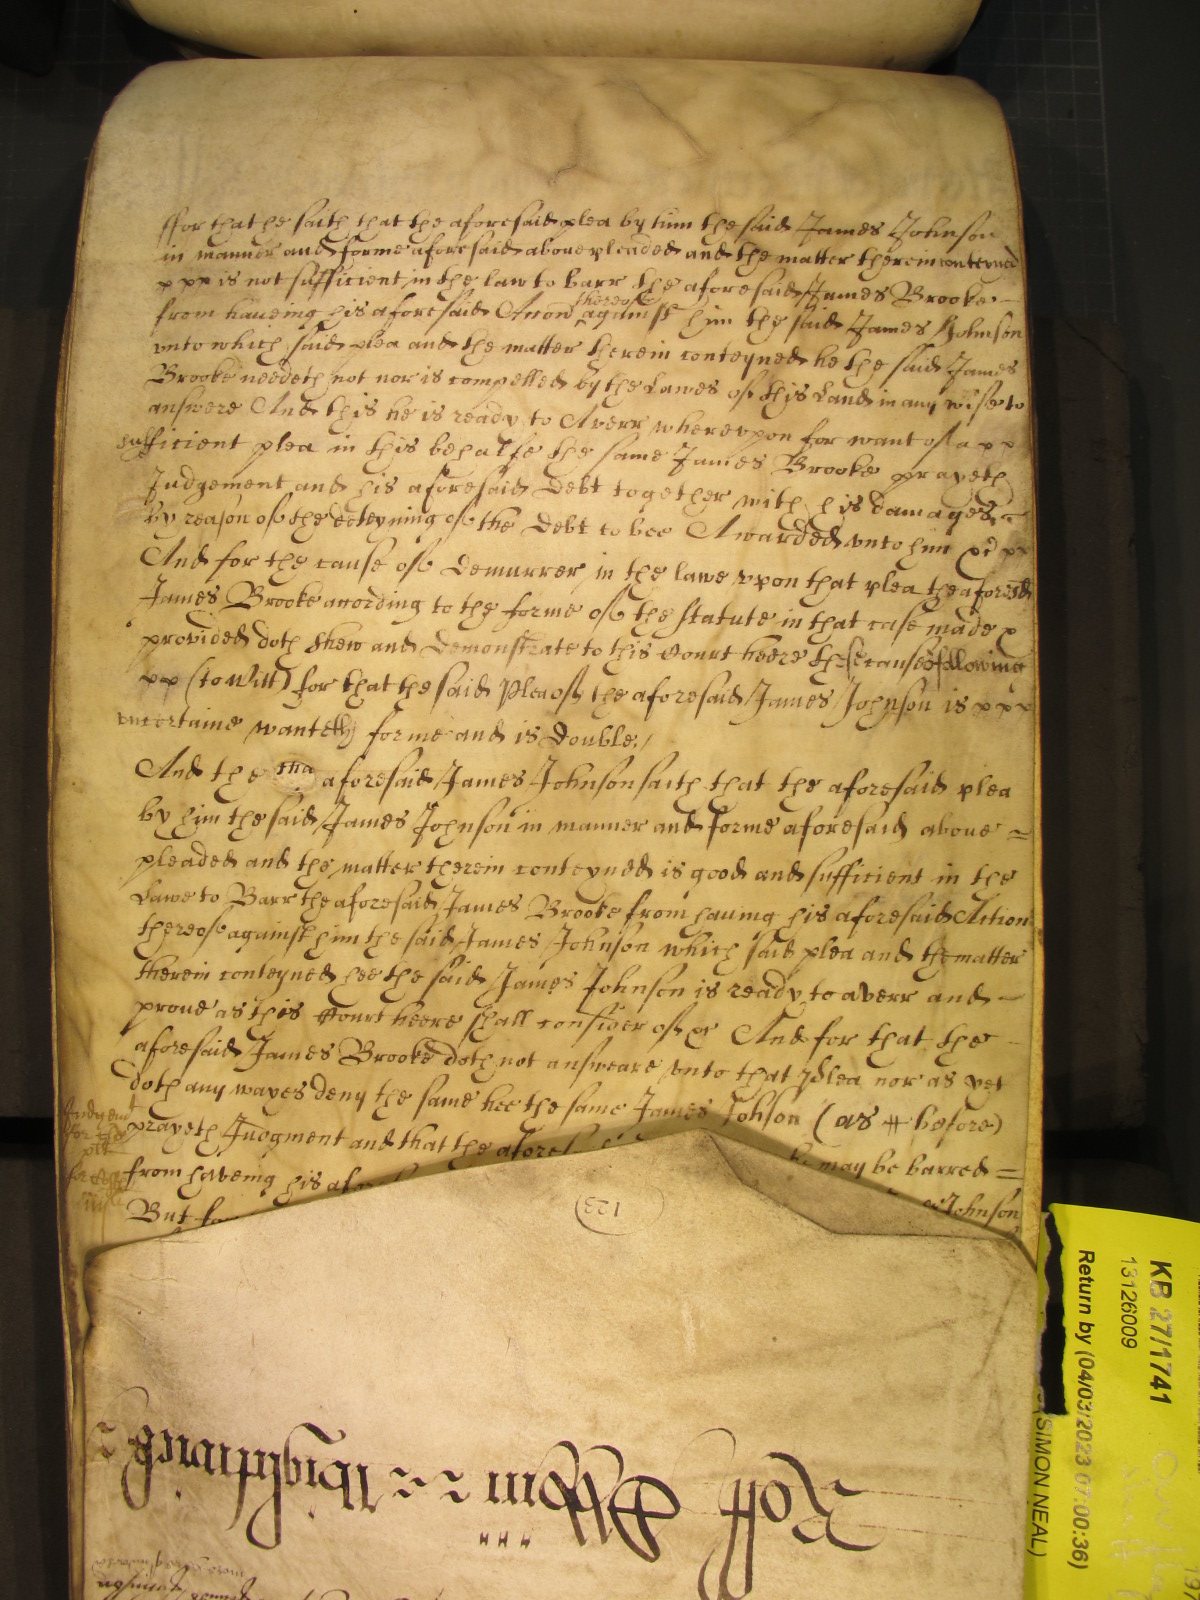 ffor that he saith that the aforesaid plea by him the said James Johnson
in manner and forme aforesaid above pleaded and the matter therein conteyned
is not sufficient in the law to barr the aforesaid James Brooke
from haueing his aforesaid Accon thereof against him the said James Johnson
vnto which said plea and the matter therein conteyned he the said James
Brooke needeth not nor is compelled by the Lawes of this Land in any wise to
answere And this he is ready to Averr wherevpon for want of a
sufficient plea in this behalfe the same James Brooke prayeth
Judgement and his aforesaid Debt together with his damages
by reason of the deteyning of the Debt to bee Awarded vnto him &c
And for the cause of Demurrer in the lawe vpon that plea the aforesaid
James Brooke according to the forme of the Statute in that case made
provided doth shew and demonstrate to this Court heere these causes following
(to Witt) for that the said Plea of the aforesaid James Johnson is
vncertaine wanteth forme and is Double./
And the aforesaid James Johnson saith that the aforesaid plea
by him the said James Johnson in manner and forme aforesaid above =
pleaded and the matter therein conteyned is good and sufficient in the
Lawe to Barr the aforesaid James Brooke from haung his aforesaid Action
thereof against him the said James Johnson which said plea and the matter
therein conteyned hee the said James Johnson is ready to averr and
prove as this Court heere shall consider of &c And for that the
aforesaid James Brooke doth not answeare vnto that Plea nor as yet
doth any wayes deny the same hee the same James Johson (as # before)
prayeth Judgment and that the
may be barred =
from haveing his
Johnson
But
123
Roll
Wightwick
KB 27/1741
13126009
Return by (04/03/2023 07:00:36)
(SIMON NEAL)